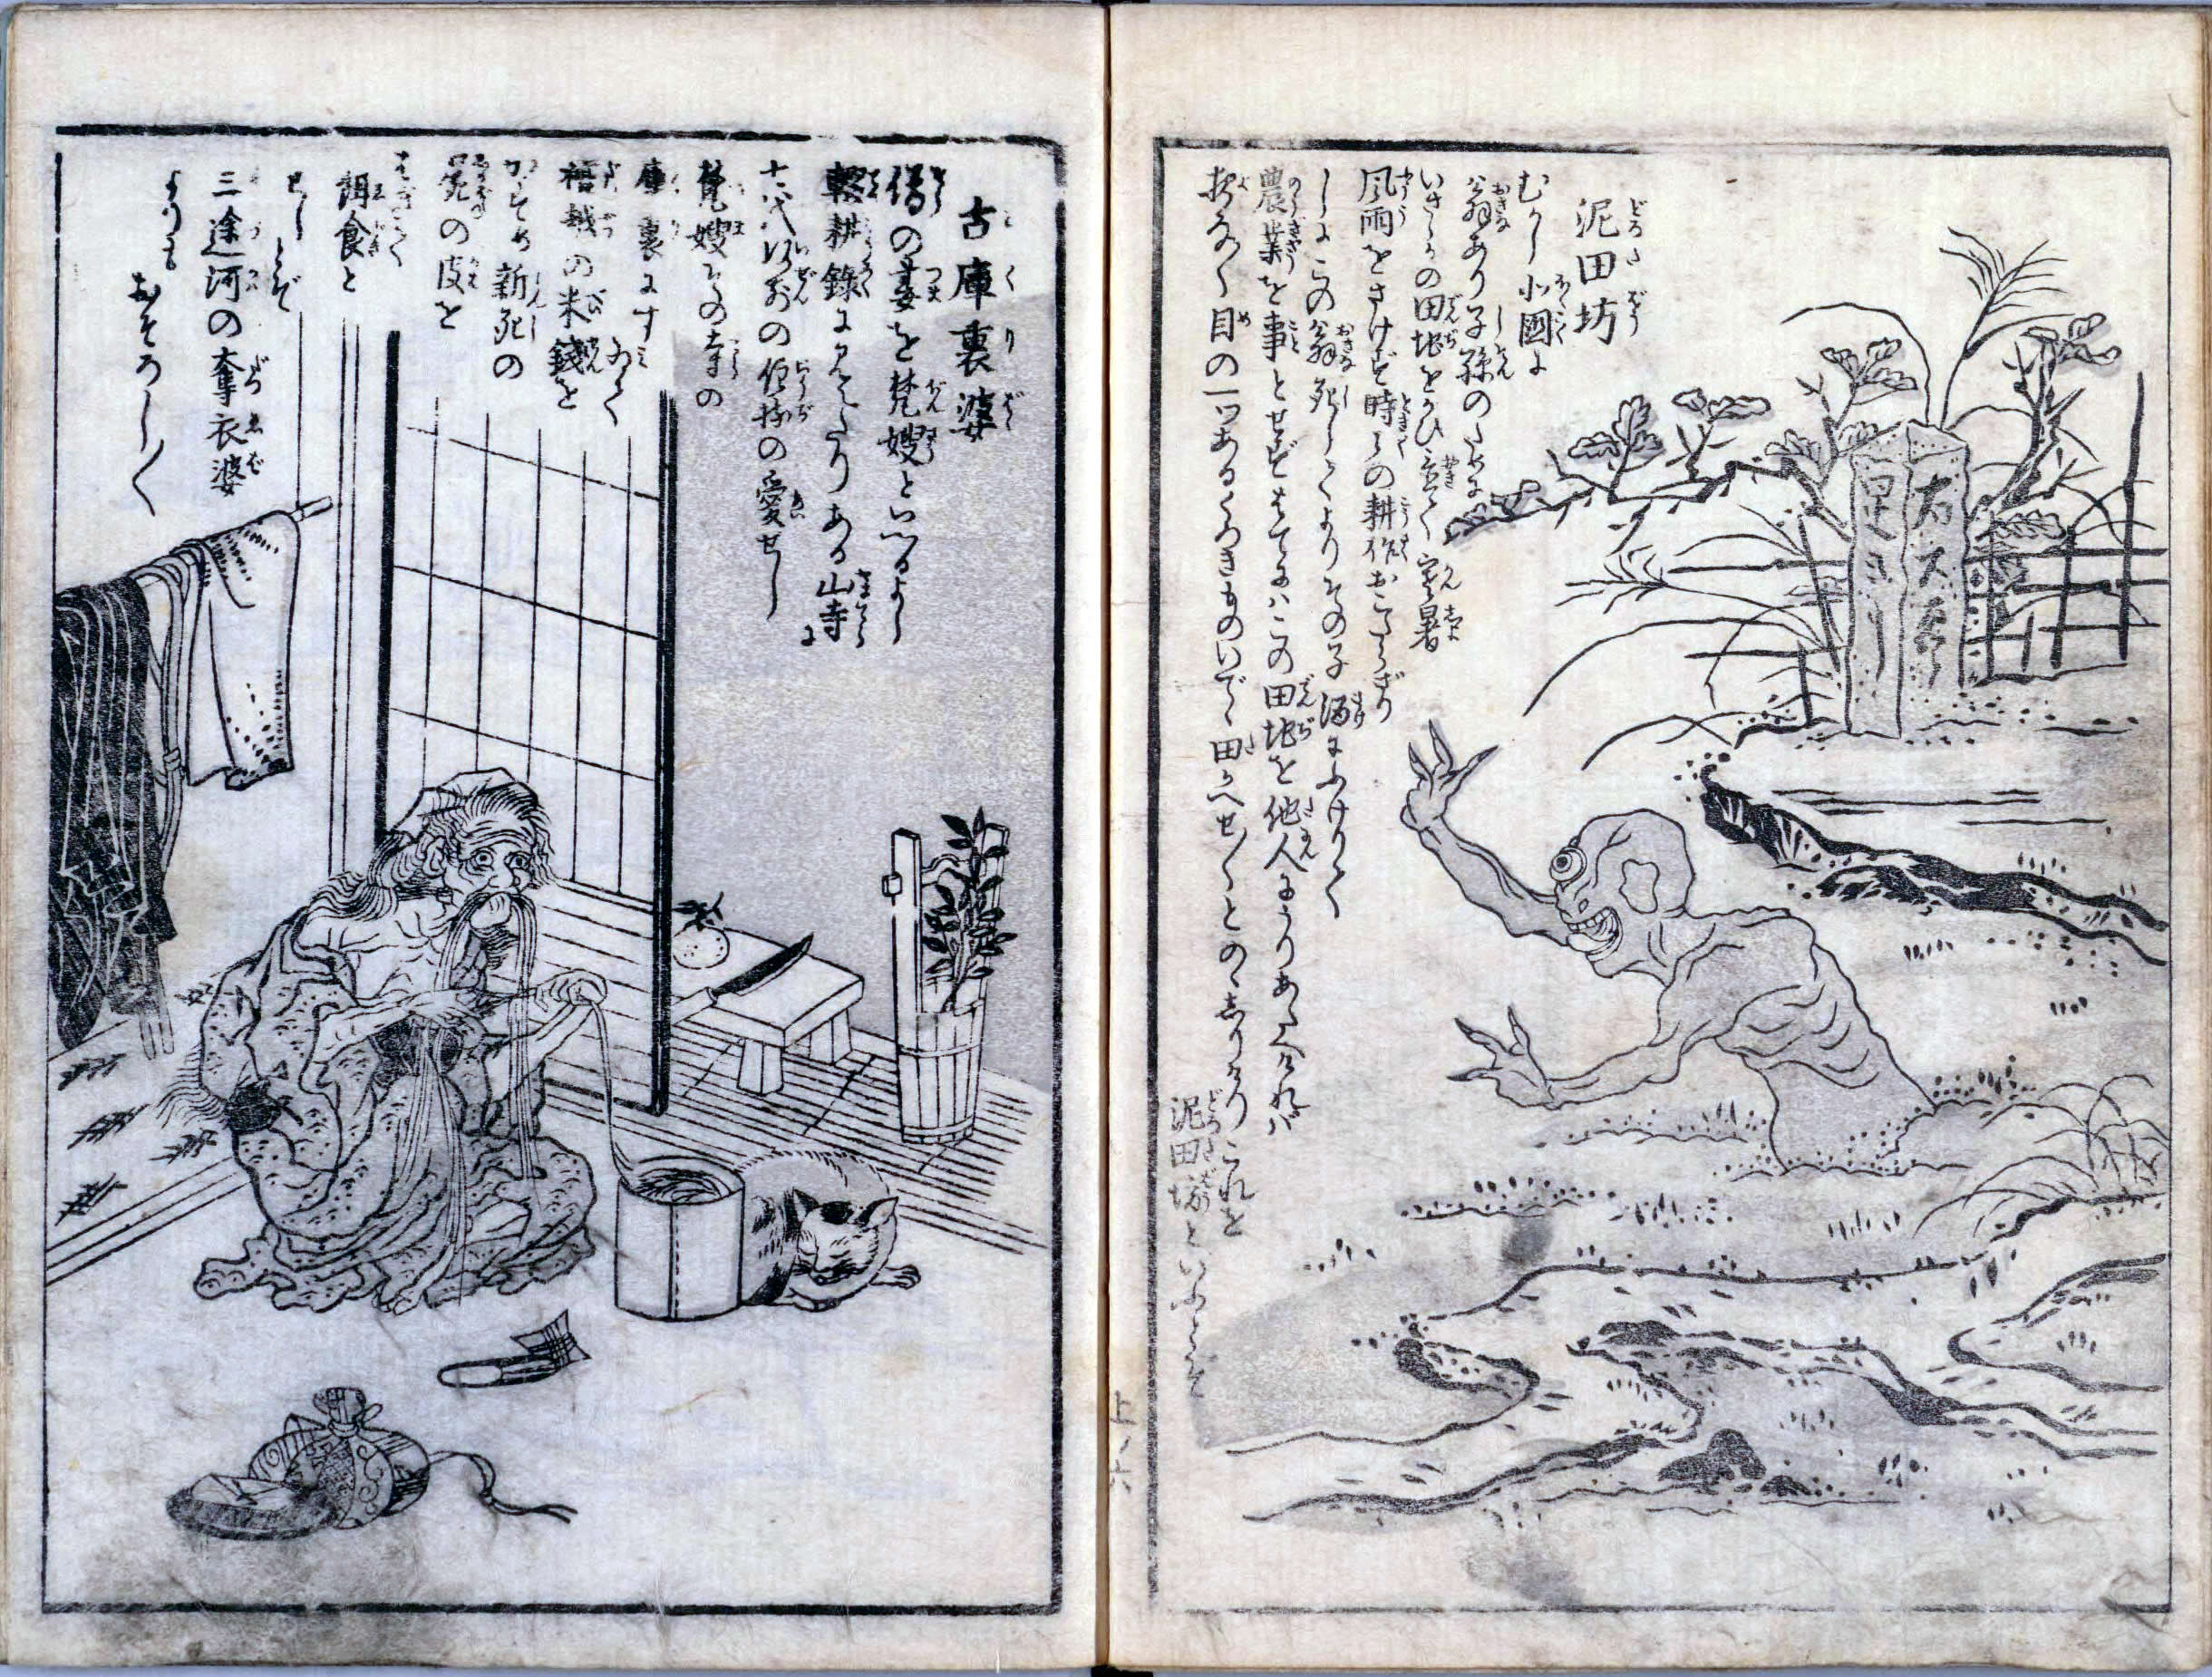 泥田坊
むかし北國に
翁あり子孫のために
いさゝかの田地をかひ置て寒暑
風雨をさけず時〳〵の耕作おこたらざり
しにこの翁死してよりその子酒にふけりて
農業を事とせずはてにハこの田地を他人にうりあたへければ
夜な〳〵目の一ツあるくろきものいでゝ田かへせ〳〵とのゝしりけりこれを
泥田坊といふとぞ
是ヨリ
上ノ六
古庫裏婆
僧の妻を梵嫂といへるよし
輟耕録に見えたりある山寺に
七代以前の住持の愛せし
梵嫂その寺の
庫裏にすみゐて
檀越の米銭を
かすめ新死の
屍の皮を
はぎて
餌食と
せしとぞ
三途河の奪衣婆
よりも
おそろし〳〵